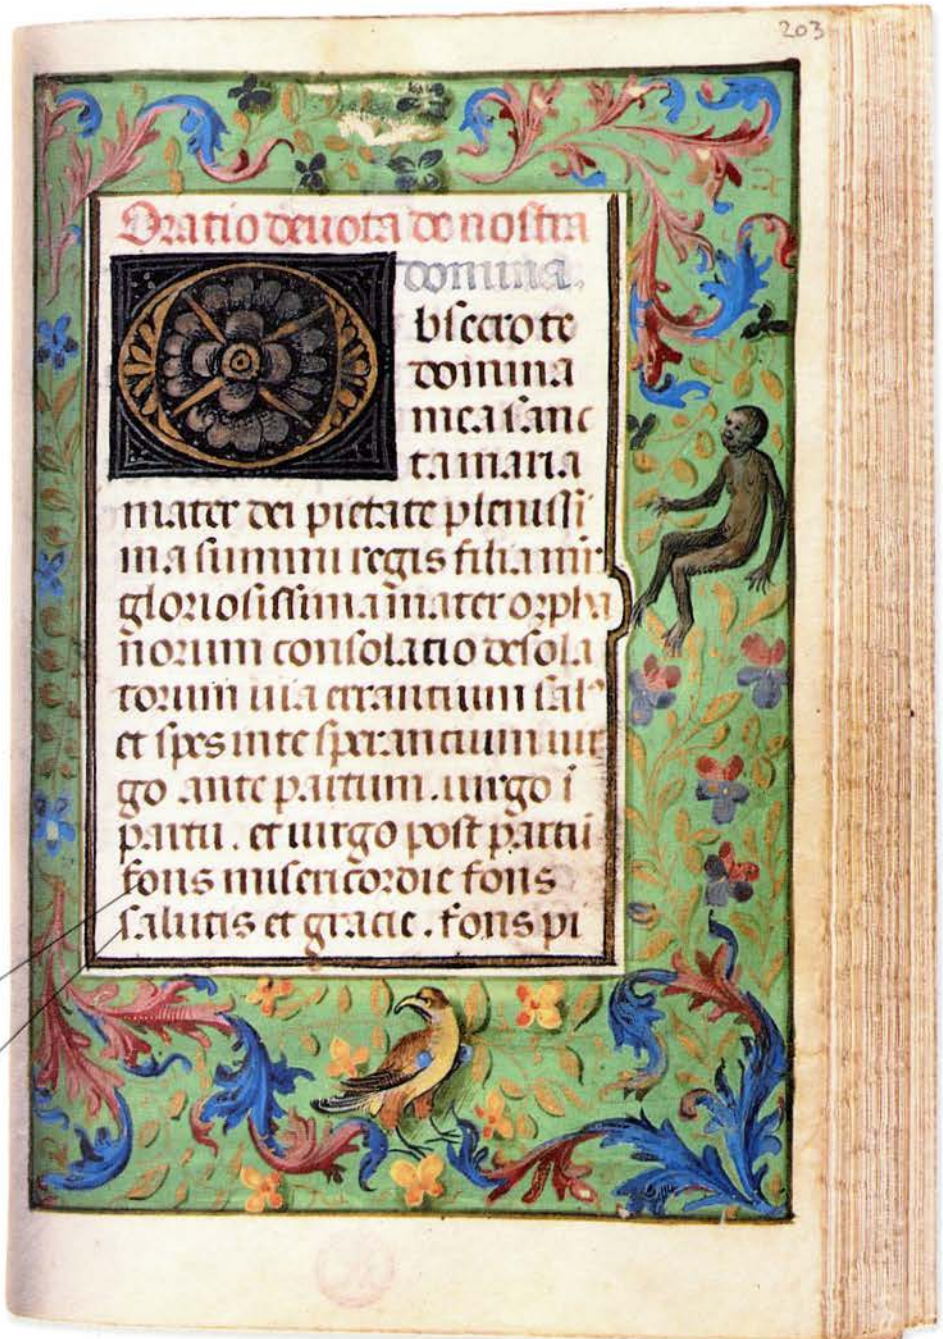 203
Oratio deuota de nostra
domina.
Obsecro te
domina
mea sanc
ta maria
mater dei pietate plenissi
ma summi regis filia
gloriosissima mater orpha
norum consolacio desola
torum uia errantium sal⁹
et spes in te sperancium uir
go ante partum. uirgo ī
partu. et uirgo post partū
fons misericordie fons
salutis et gracie. fons pi